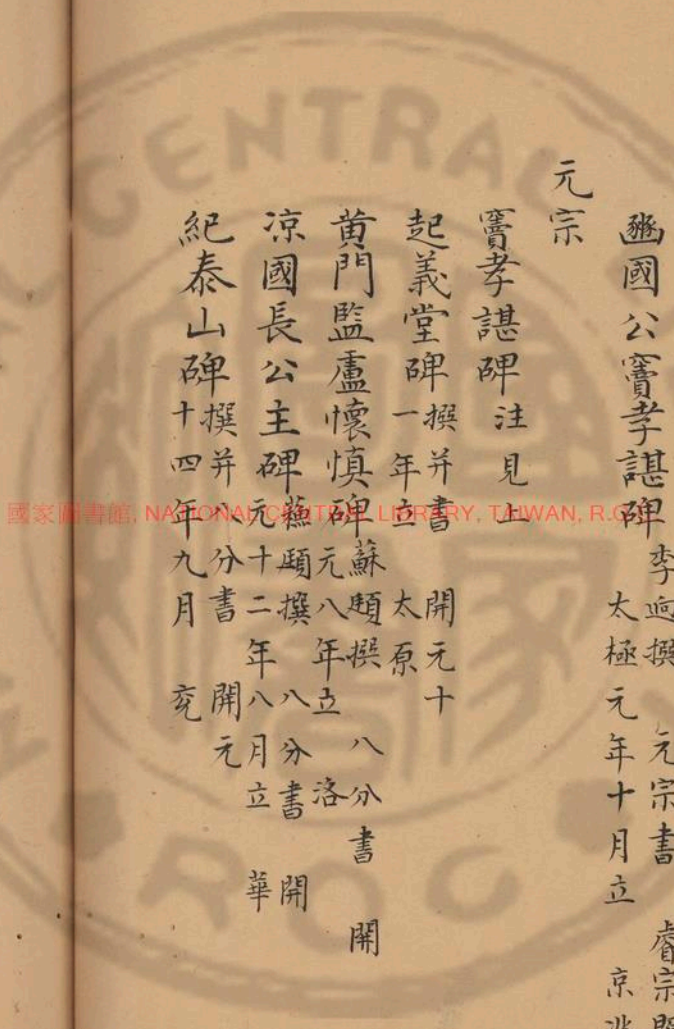 豳國公竇孝諶碑 李逈撰 元宗書 睿宗
太極元年十月立 京兆
元宗
竇孝諶碑 注見上
起義堂碑 撰并書 開元十
一年立 太原
黄門監盧懷慎碑 蘇頲撰 八分書 開
元八年立 洛
凉國長公主碑 蘇頲撰 八分書 開
元十二年八月立 華
紀泰山碑 撰并八分書 開元
十四年九月 兖
國家圖書館, NATIONAL CENTRAL LIBRARY, TAIWAN, R.O.C
CENTRAL
R O C